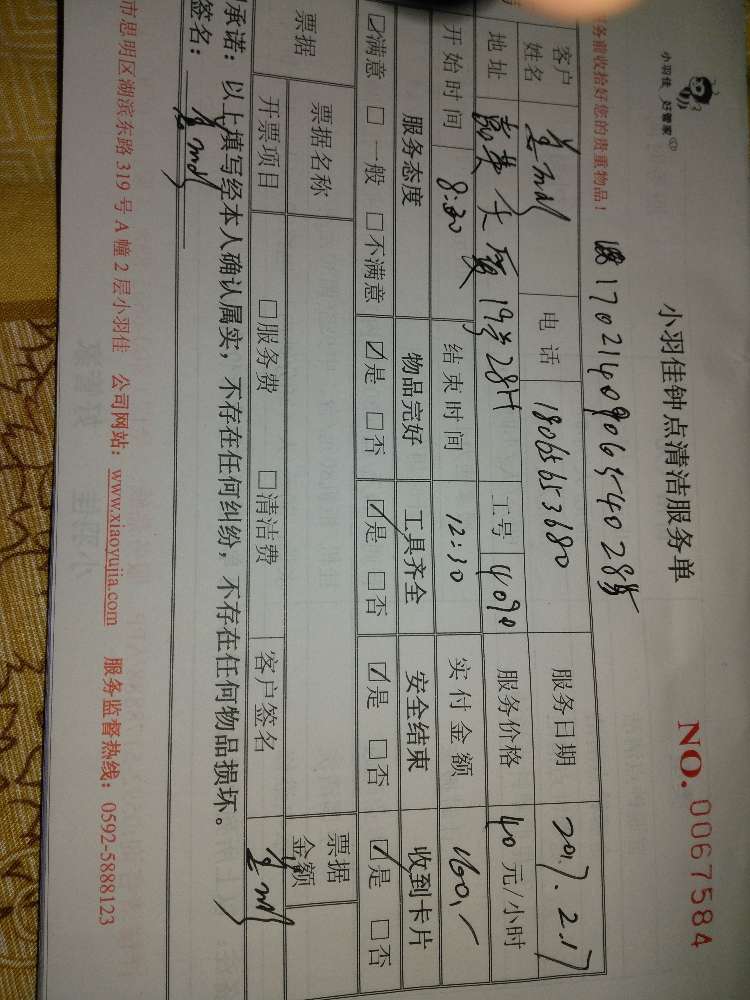 小羽佳 好管家
小羽佳钟点清洁服务单
NO. 0067584
务前收拾好您的贵重物品!
170214090654028
客户姓名 电话 18065653680 服务日期 2017.2.17
地址 19号28H 工号 4090 服务价格 40 元/小时
开始时间 8:30 结束时间 12:30 实付金额 160.-
服务态度 物品完好 工具齐全 安全结束 收到卡片
☑满意 □一般 □不满意 ☑是 □否 ☑是 □否 ☑是 □否 ☑是 □否
票据 票据名称 票据金额
开票项目 □服务费 □清洁费 客户签名
承诺:以上填写经本人确认属实,不存在任何纠纷,不存在任何物品损坏。
签名:
市思明区湖滨东路 319 号 A 幢 2 层小羽佳 公司网站:www.xiaoyujia.com 服务监督热线:0592-5888123